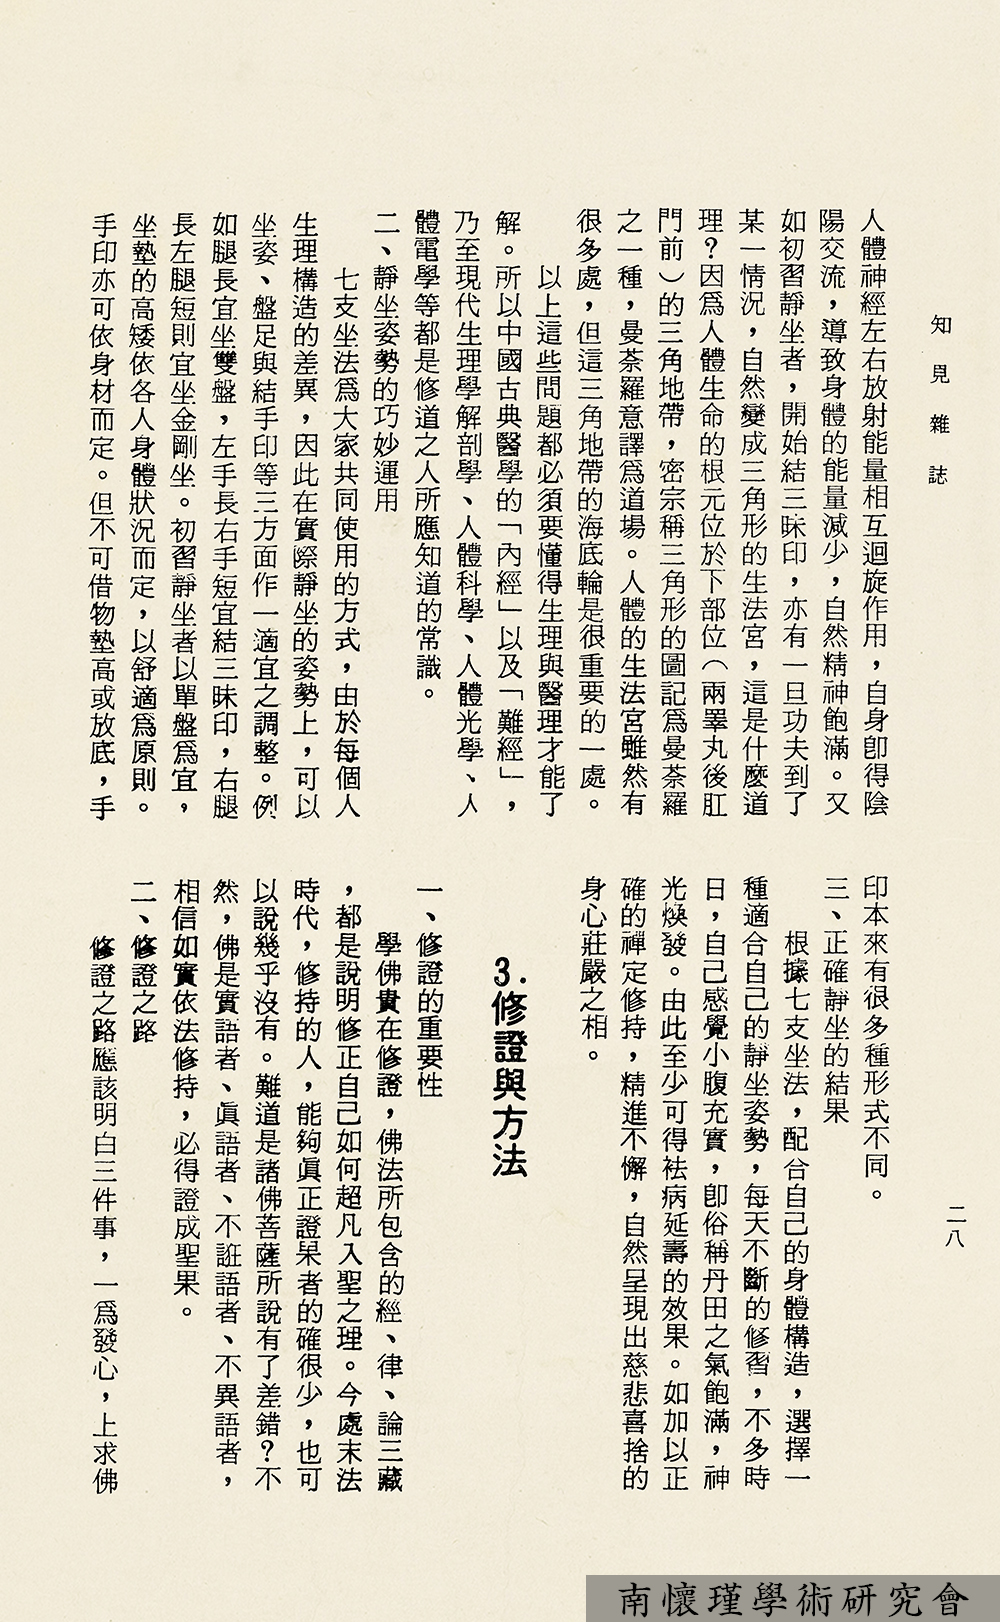 知見雜誌
二八
人體神經左右放射能量相互迴旋作用，自身卽得陰
陽交流，導致身體的能量減少，自然精神飽滿。又
如初習靜坐者，開始結三昧印，亦有一旦功夫到了
某一情況，自然變成三角形的生法宮，這是什麼道
理？因爲人體生命的根元位於下部位（兩睪丸後肛
門前）的三角地帶，密宗稱三角形的圖記爲曼荼羅
之一種，曼荼羅意譯爲道場。人體的生法宮雖然有
很多處，但這三角地帶的海底輪是很重要的一處。
以上這些問題都必須要懂得生理與醫理才能了
解。所以中國古典醫學的「內經」以及「難經」，
乃至現代生理學解剖學、人體科學、人體光學、人
體電學等都是修道之人所應知道的常識。
二、靜坐姿勢的巧妙運用
七支坐法爲大家共同使用的方式，由於每個人
生理構造的差異，因此在實際靜坐的姿勢上，可以
坐姿、盤足與結手印等三方面作一適宜之調整。例
如腿長宜坐雙盤，左手長右手短宜結三昧印，右腿
長左腿短則宜坐金剛坐。初習靜坐者以單盤爲宜，
坐墊的高矮依各人身體狀況而定，以舒適爲原則。
手印亦可依身材而定。但不可借物墊高或放底，手
印本來有很多種形式不同。
三、正確靜坐的結果
根據七支坐法，配合自己的身體構造，選擇一
種適合自己的靜坐姿勢，每天不斷的修習，不多時
日，自己感覺小腹充實，卽俗稱丹田之氣飽滿，神
光煥發。由此至少可得袪病延壽的效果。如加以正
確的禪定修持，精進不懈，自然呈現出慈悲喜捨的
身心莊嚴之相。
3.修證與方法
一、修證的重要性
學佛貴在修證，佛法所包含的經、律、論三藏
，都是說明修正自己如何超凡入聖之理。今處末法
時代，修持的人，能夠眞正證果者的確很少，也可
以說幾乎沒有。難道是諸佛菩薩所說有了差錯？不
然，佛是實語者、眞語者、不誑語者、不異語者，
相信如實依法修持，必得證成聖果。
二、修證之路
修證之路應該明白三件事，一爲發心，上求佛
南懷瑾學術研究會